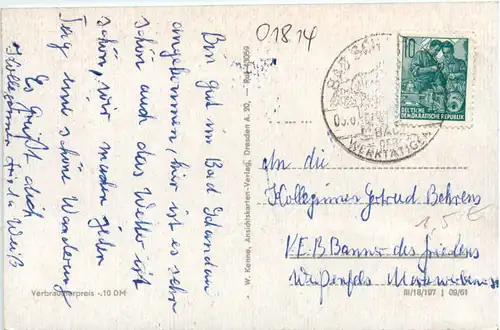 01814
Bin gut im Bad Schandau
angekommen, hier ist es sehr
schön auch das Wetter ist
schön, wir machen jeden
Tag eine schöne Wanderung
Es grüßt dich
Kollegin Weiß
W. Kenne, Ansichtskarten-Verlag, Dresden A. 20,
BAD
BAD
DER
WERKTÄTIGEN
10
DEUTSCHE
DEMOKRATISCHE REPUBLIK
An die
Kollegin Gertrud Behrens
1,5 €
K.E.B. Banner des Friedens
Weißenfels
Verbraucherpreis -.10 DM
III/18/197 | 09/61